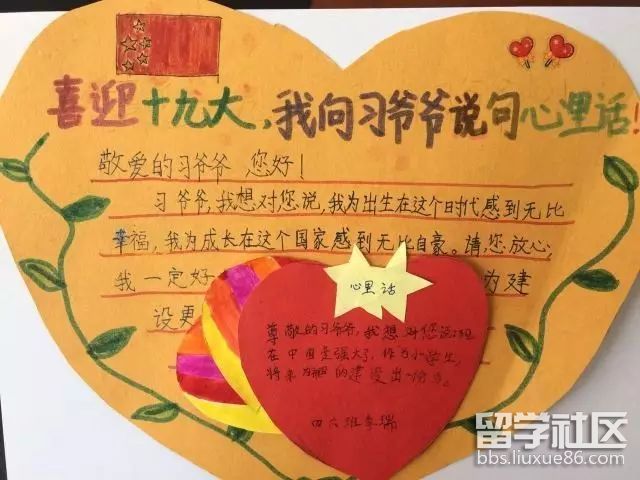 喜迎十九大,我向习爷爷说句心里话!
敬爱的习爷爷 您好!
习爷爷,我想对您说,我为出生在这个时代感到无比
幸福,我为成长在这个国家感到无比自豪。请您放心,
我一定好
为建
设更
心里话
尊敬的习爷爷,我想对您说:现
在中国是强大了,作为小学生,
将来为祖国的建设出一份力。
四六班李瑞
留学社区
bbs.liuxue86.com